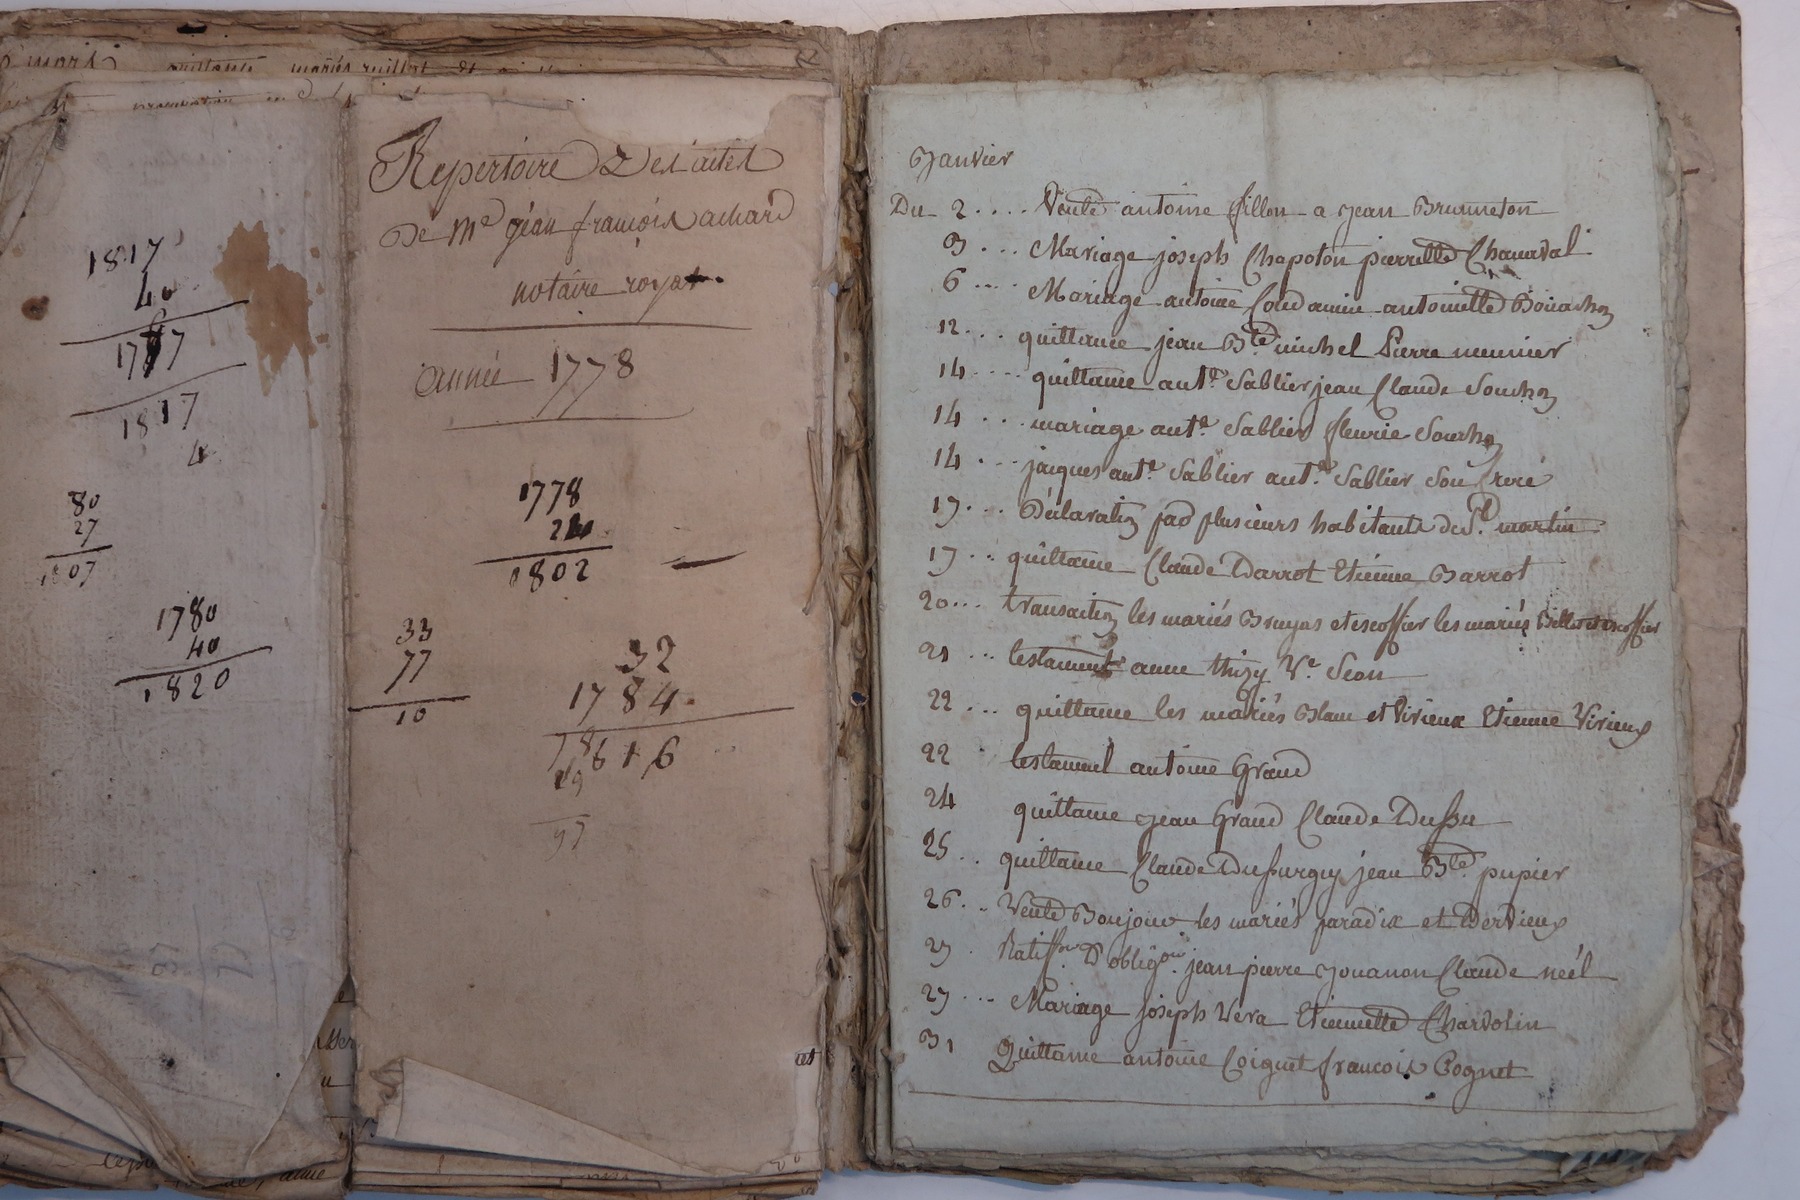 mars quittance mariés
1817
40
1777
1817
4
80
27
1807
1780
40
1820
Repertoire Des actes
De Me jean françois achard
notaire royal.
année 1778
1778
24
1802
33
77
10
32
1784
1816
19
97
Janvier
Du 2 .... Vente antoine fillon a jean Brunneton
3 ... Mariage joseph Chapoton pierrette Chanaval
6 .... Mariage antoine Coudamin antoinette Bouchon
12 ... quittance jean Bte michel Pierre meunier
14 .... quittance ante Sablier jean Claude Souchon
14 ... mariage ante Sablier fleurie Souchon
14 ... jacques ante Sablier ante Sablier Son frere
17 ... Déclaration par plusieurs habitants de St martin
17 .. quittance Claude Barrot Etienne Barrot
20 ... transaction les mariés Bruyas et escoffier les mariés et escoffier
21 ... testament anne thizy Ve Seon
22 ... quittance les mariés Blanc et Virieux Etienne Virieux
22 testament antoine Grand
24 quittance jean Grand Claude Dussu
25 .. quittance Claude Dussurguy jean Bte pupier
26 .. Vente Boujour les mariés paradix et Dervieux
27 . Ratiffon D'obligon jean pierre Jouanon Claude neél
27 ... Mariage joseph Vera Etiennette Chardolin
31 Quittance antoine Coignet francois Cognet